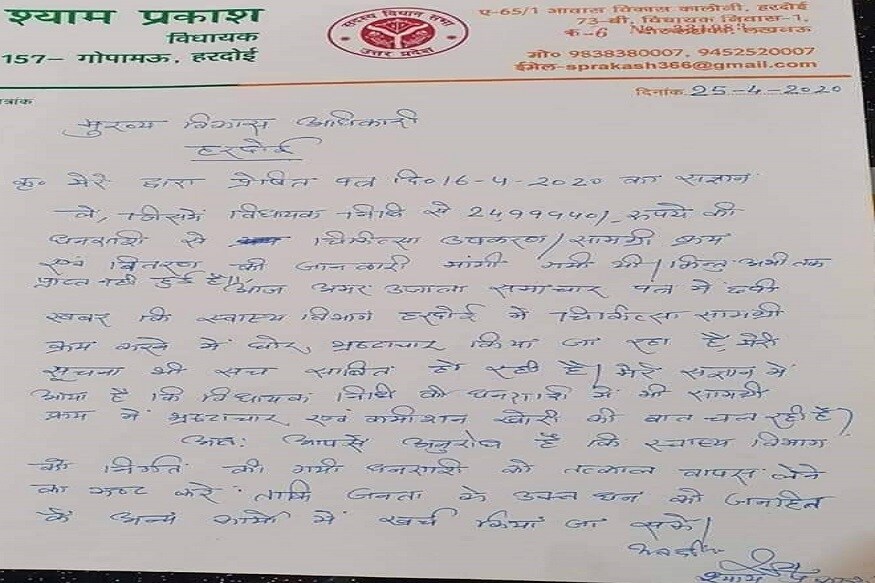 श्याम प्रकाश
विधायक
157– गोपामऊ, हरदोई
सदस्य विधान सभा
उत्तर प्रदेश
ए-65/1 आवास विकास कालौनी, हरदोई
73-बी, विधायक निवास-1,
क-6 लखनऊ
मो० 9838380007, 9452520007
ईमेल-sprakash366@gmail.com
त्रांक
दिनांक 25-4-2020
मुख्य विकास अधिकारी
हरदोई
कृ० मेरे द्वारा प्रेषित पत्र दि० 16-4-2020 का संज्ञान
लें, जिसमें विधायक निधि से 2499940/- रुपये की
धनराशी से चिकित्सा उपकरण/सामग्री क्रय
एवं वितरण की जानकारी मांगी गयी थी/ किन्तु अभी तक
प्राप्त नहीं हुई है। आज अमर उजाला समाचार पत्र में छपी
खबर कि स्वास्थ्य विभाग हरदोई में चिकित्सा सामग्री
क्रय करने में घोर भ्रष्टाचार किया जा रहा है, मेरी
सूचना भी सच साबित हो रही है/ मेरे संज्ञान में
आया है कि विधायक निधि की धनराशी में भी सामग्री
क्रय में भ्रष्टाचार एवं कमीशन खोरी की बात चल रही है/
अतः आपसे अनुरोध है कि स्वास्थ्य विभाग
को निर्गत की गयी धनराशी को तत्काल वापस लेने
का कष्ट करें ताकि जनता के उक्त धन को जनहित
के अन्य कार्यों में खर्च किया जा सके/
भवदीय
श्याम